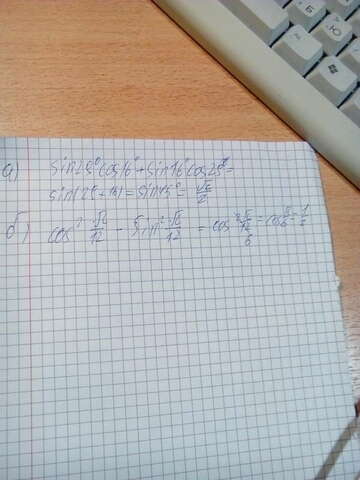 а) sin25°cos16°+sin16°cos25°=
sin(25+16)=sin45°=√2/2
б) cos² π/12 - sin² π/12 = cos 2π/12 = cos π/6 = 1/2